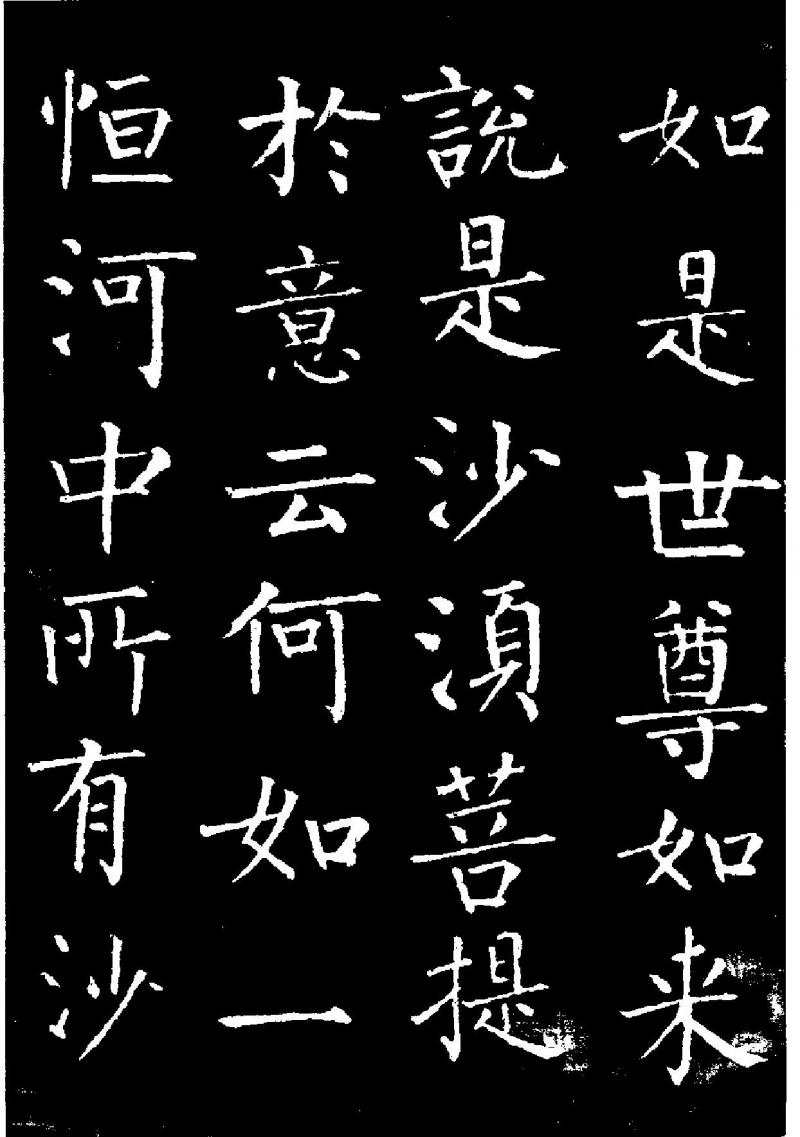 如是世尊如来
說是沙湏菩提
於意云何如一
恒河中所有沙